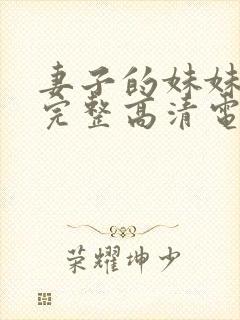 妻子的妹妹
完整高清電
荣耀坤少